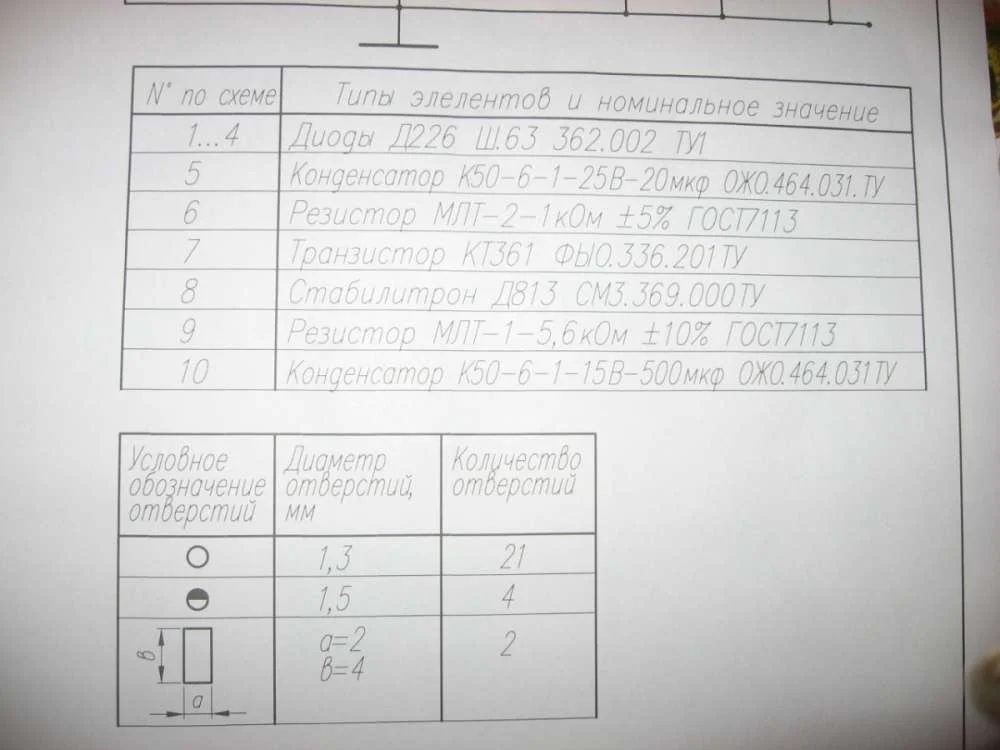 N° по схеме Типы элелентов и номинальное значение
1...4 Диоды Д226 Ш.63 362.002 ТУ1
5 Конденсатор К50-6-1-25В-20мкф ОЖО.464.031.ТУ
6 Резистор МЛТ-2-1кОм ±5% ГОСТ7113
7 Транзистор КТ361 ФЫО.336.201ТУ
8 Стабилитрон Д813 СМ3.369.000ТУ
9 Резистор МЛТ-1-5,6кОм ±10% ГОСТ7113
10 Конденсатор К50-6-1-15В-500мкф ОЖО.464.031ТУ
Условное обозначение отверстий
Диаметр отверстий, мм
Количество отверстий
1,3 21
1,5 4
в
а
а=2
в=4
2